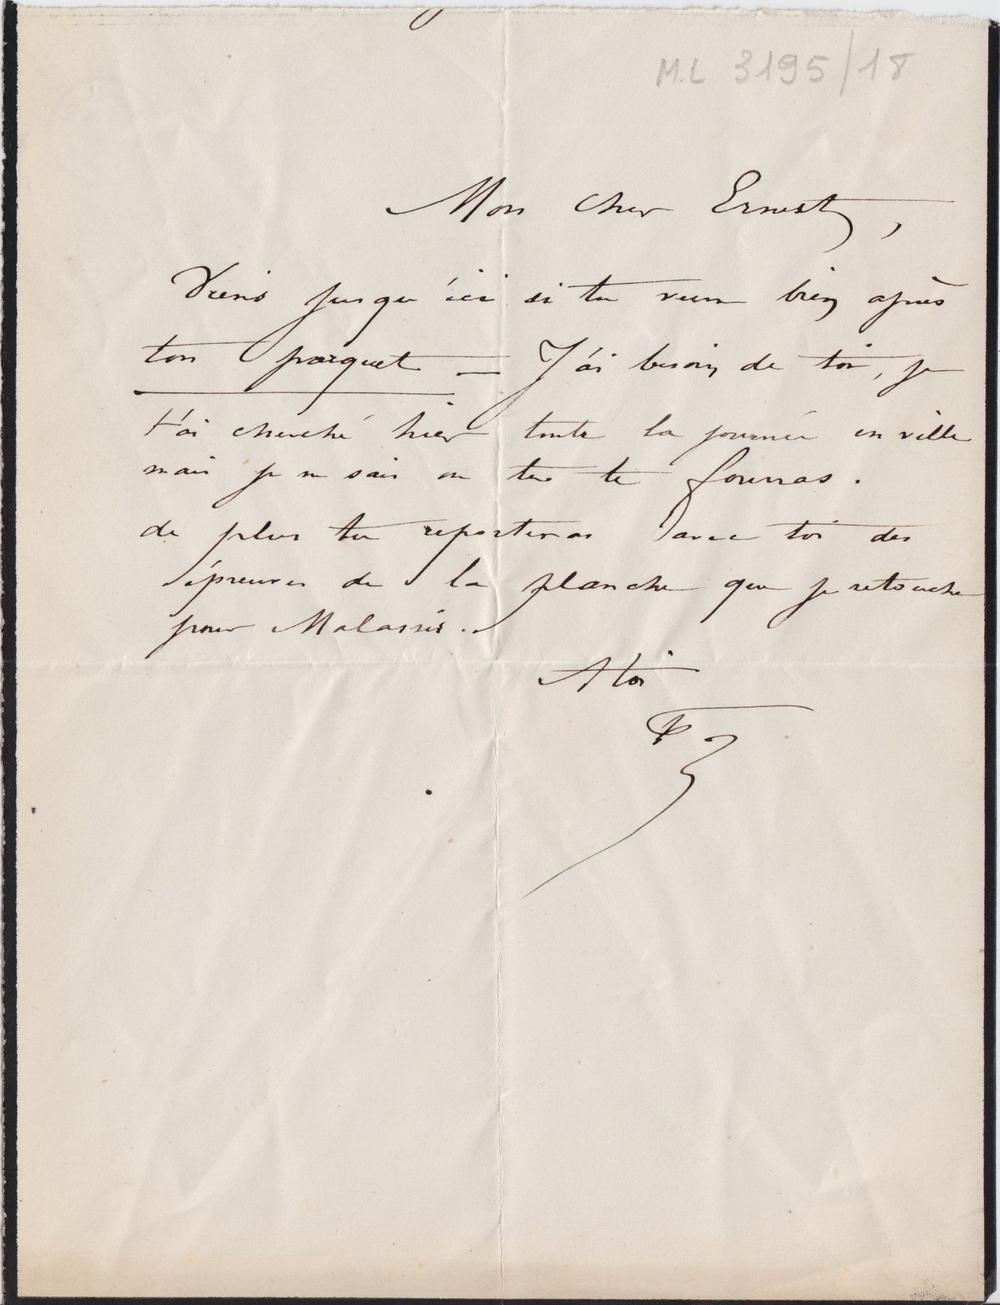 ML 3195/18
Mon cher Ernest,
Viens jusqu'ici si tu veux bien après
ton parquet = J'ai besoin de toi, je
t'ai cherché hier toute la journée en ville
mais je ne sais ou tu te fourras.
de plus tu reporteras avec toi des
épreuves de la planche que je retouche
pour Malassis.
A toi